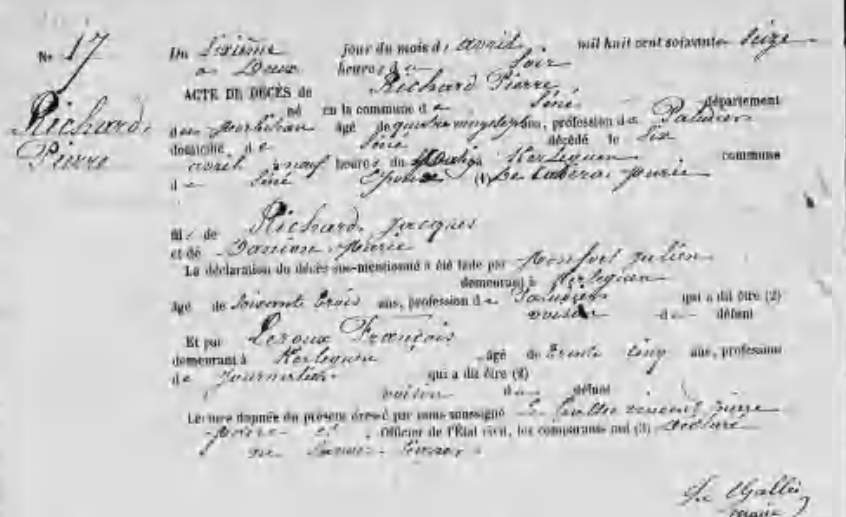 No 17
Richard
Pierre
Du Sixième jour du mois d' avril mil huit cent soixante-seize
à Deux heures d soir
ACTE DE DÉCÈS de Richard Pierre
né en la commune de Séné département
du Morbihan âgé de profession de Paludier
domicilié de Séné décédé le Six
avril à neuf heures du à Kerleguen commune
de Séné Époux (1) Marie
fils de Richard Jacques
et de Danion Marie
La déclaration du décès sus-mentionné a été faite par Monfort Julien
demeurant à Kerleguen
âgé de soixante trois ans, profession de Paludier qui a dit être (2)
voisin du défunt
Et par Leroux François
demeurant à Kerleguen âgé de trente cinq ans, profession
de Journalier qui a dit être (2)
voisin du défunt
Lecture donnée du présent dressé par nous soussigné Vincent Pierre
Officier de l'État civil, les comparants ont (3) déclaré
ne savoir signer
maire